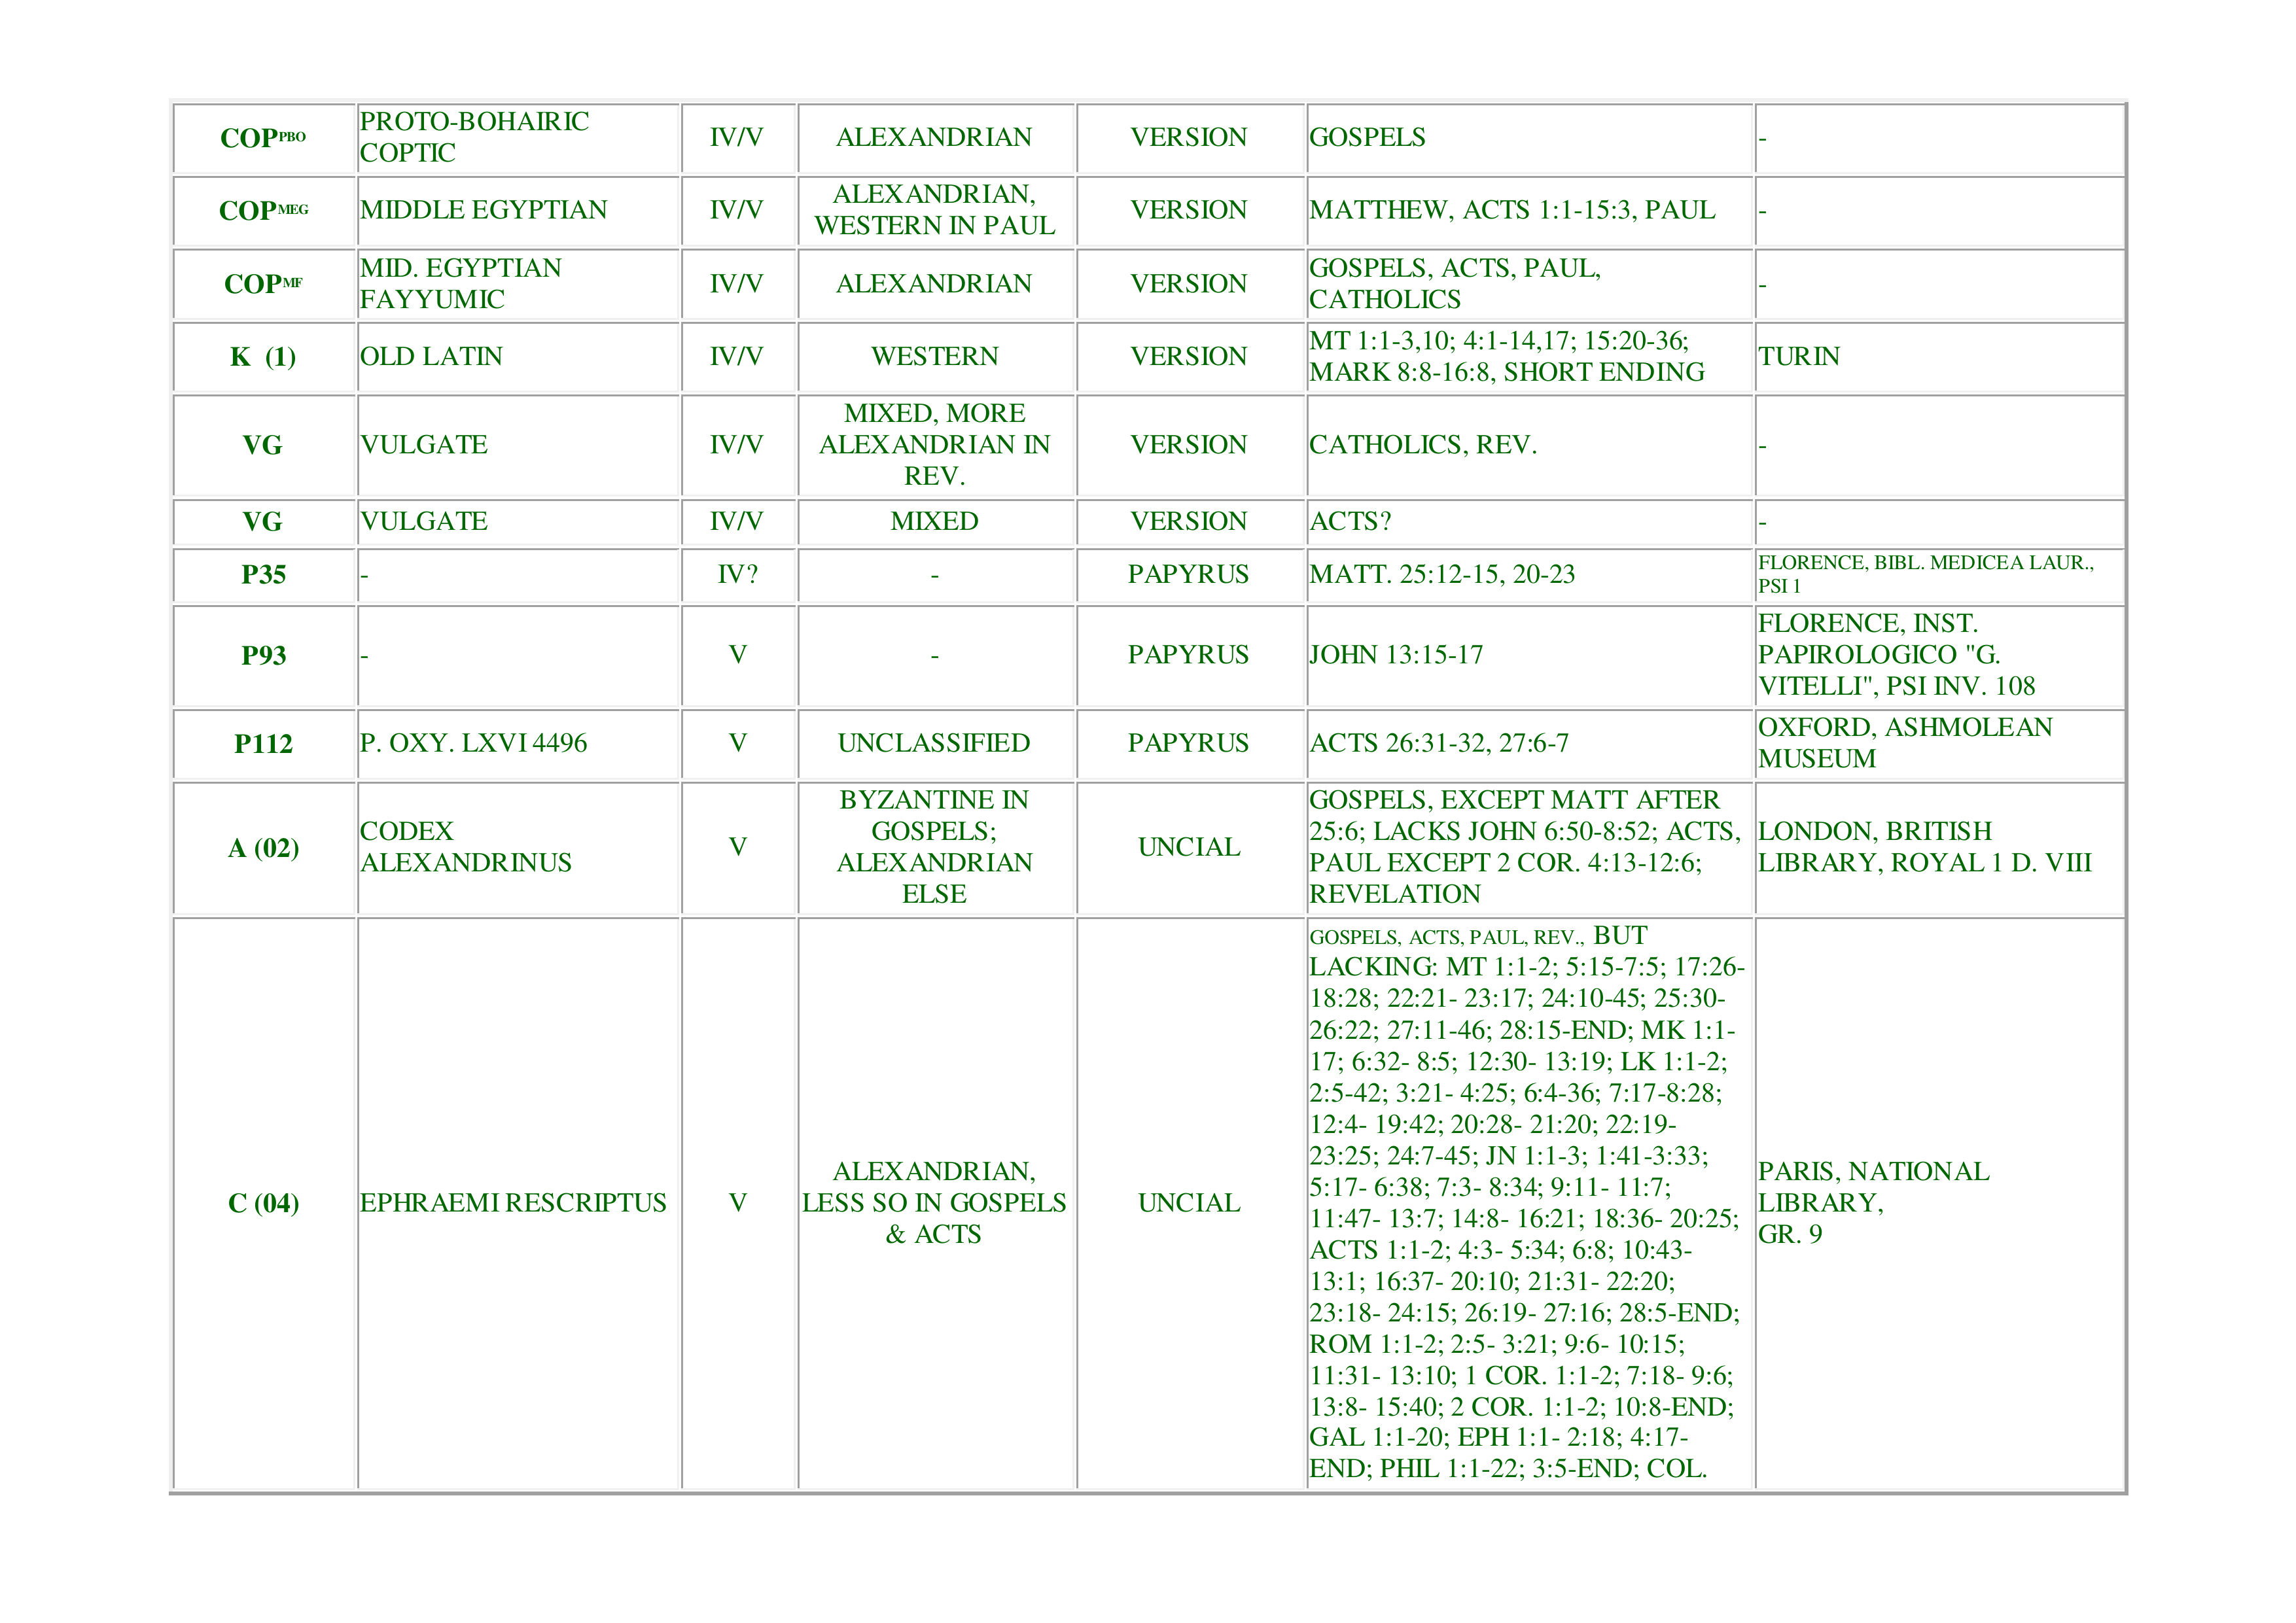 COPPBO PROTO-BOHAIRIC COPTIC IV/V ALEXANDRIAN VERSION GOSPELS -
COPMEG MIDDLE EGYPTIAN IV/V ALEXANDRIAN, WESTERN IN PAUL VERSION MATTHEW, ACTS 1:1-15:3, PAUL -
COPMF MID. EGYPTIAN FAYYUMIC IV/V ALEXANDRIAN VERSION GOSPELS, ACTS, PAUL, CATHOLICS -
K (1) OLD LATIN IV/V WESTERN VERSION MT 1:1-3,10; 4:1-14,17; 15:20-36; MARK 8:8-16:8, SHORT ENDING TURIN
VG VULGATE IV/V MIXED, MORE ALEXANDRIAN IN REV. VERSION CATHOLICS, REV. -
VG VULGATE IV/V MIXED VERSION ACTS? -
P35 - IV? - PAPYRUS MATT. 25:12-15, 20-23 FLORENCE, BIBL. MEDICEA LAUR., PSI 1
P93 - V - PAPYRUS JOHN 13:15-17 FLORENCE, INST. PAPIROLOGICO "G. VITELLI", PSI INV. 108
P112 P. OXY. LXVI 4496 V UNCLASSIFIED PAPYRUS ACTS 26:31-32, 27:6-7 OXFORD, ASHMOLEAN MUSEUM
A (02) CODEX ALEXANDRINUS V BYZANTINE IN GOSPELS; ALEXANDRIAN ELSE UNCIAL GOSPELS, EXCEPT MATT AFTER 25:6; LACKS JOHN 6:50-8:52; ACTS, PAUL EXCEPT 2 COR. 4:13-12:6; REVELATION LONDON, BRITISH LIBRARY, ROYAL 1 D. VIII
C (04) EPHRAEMI RESCRIPTUS V ALEXANDRIAN, LESS SO IN GOSPELS & ACTS UNCIAL
GOSPELS, ACTS, PAUL, REV., BUT
LACKING: MT 1:1-2; 5:15-7:5; 17:26-
18:28; 22:21- 23:17; 24:10-45; 25:30-
26:22; 27:11-46; 28:15-END; MK 1:1-
17; 6:32- 8:5; 12:30- 13:19; LK 1:1-2;
2:5-42; 3:21- 4:25; 6:4-36; 7:17-8:28;
12:4- 19:42; 20:28- 21:20; 22:19-
23:25; 24:7-45; JN 1:1-3; 1:41-3:33;
5:17- 6:38; 7:3- 8:34; 9:11- 11:7;
11:47- 13:7; 14:8- 16:21; 18:36- 20:25;
ACTS 1:1-2; 4:3- 5:34; 6:8; 10:43-
13:1; 16:37- 20:10; 21:31- 22:20;
23:18- 24:15; 26:19- 27:16; 28:5-END;
ROM 1:1-2; 2:5- 3:21; 9:6- 10:15;
11:31- 13:10; 1 COR. 1:1-2; 7:18- 9:6;
13:8- 15:40; 2 COR. 1:1-2; 10:8-END;
GAL 1:1-20; EPH 1:1- 2:18; 4:17-
END; PHIL 1:1-22; 3:5-END; COL.
PARIS, NATIONAL
LIBRARY,
GR. 9